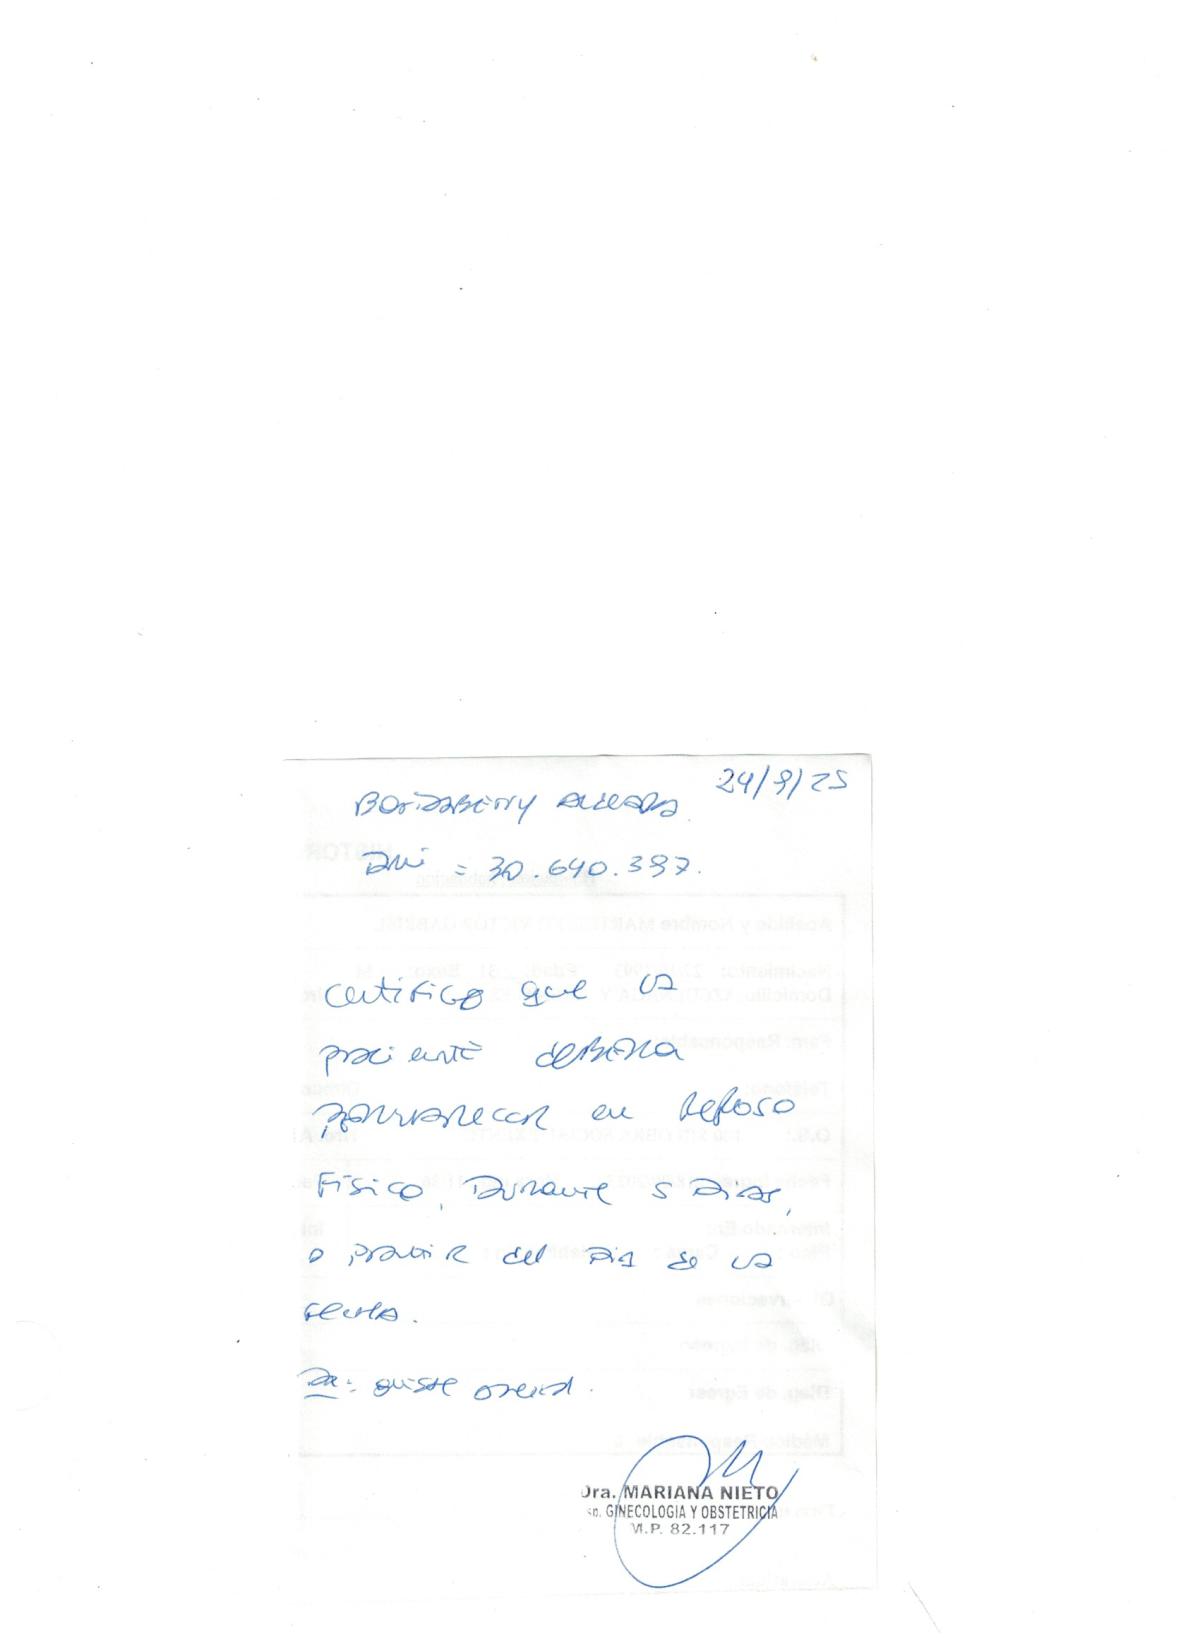 24/9/25
BORDABERRY
DNI = 30.640.397.
Certifico que la
paciente deberá
permanecer en reposo
Físico, Durante 5 Dias,
a partir del Dia de la
fecha.
Dx: quiste
Dra. MARIANA NIETO
GINECOLOGIA Y OBSTETRICIA
M.P. 82.117